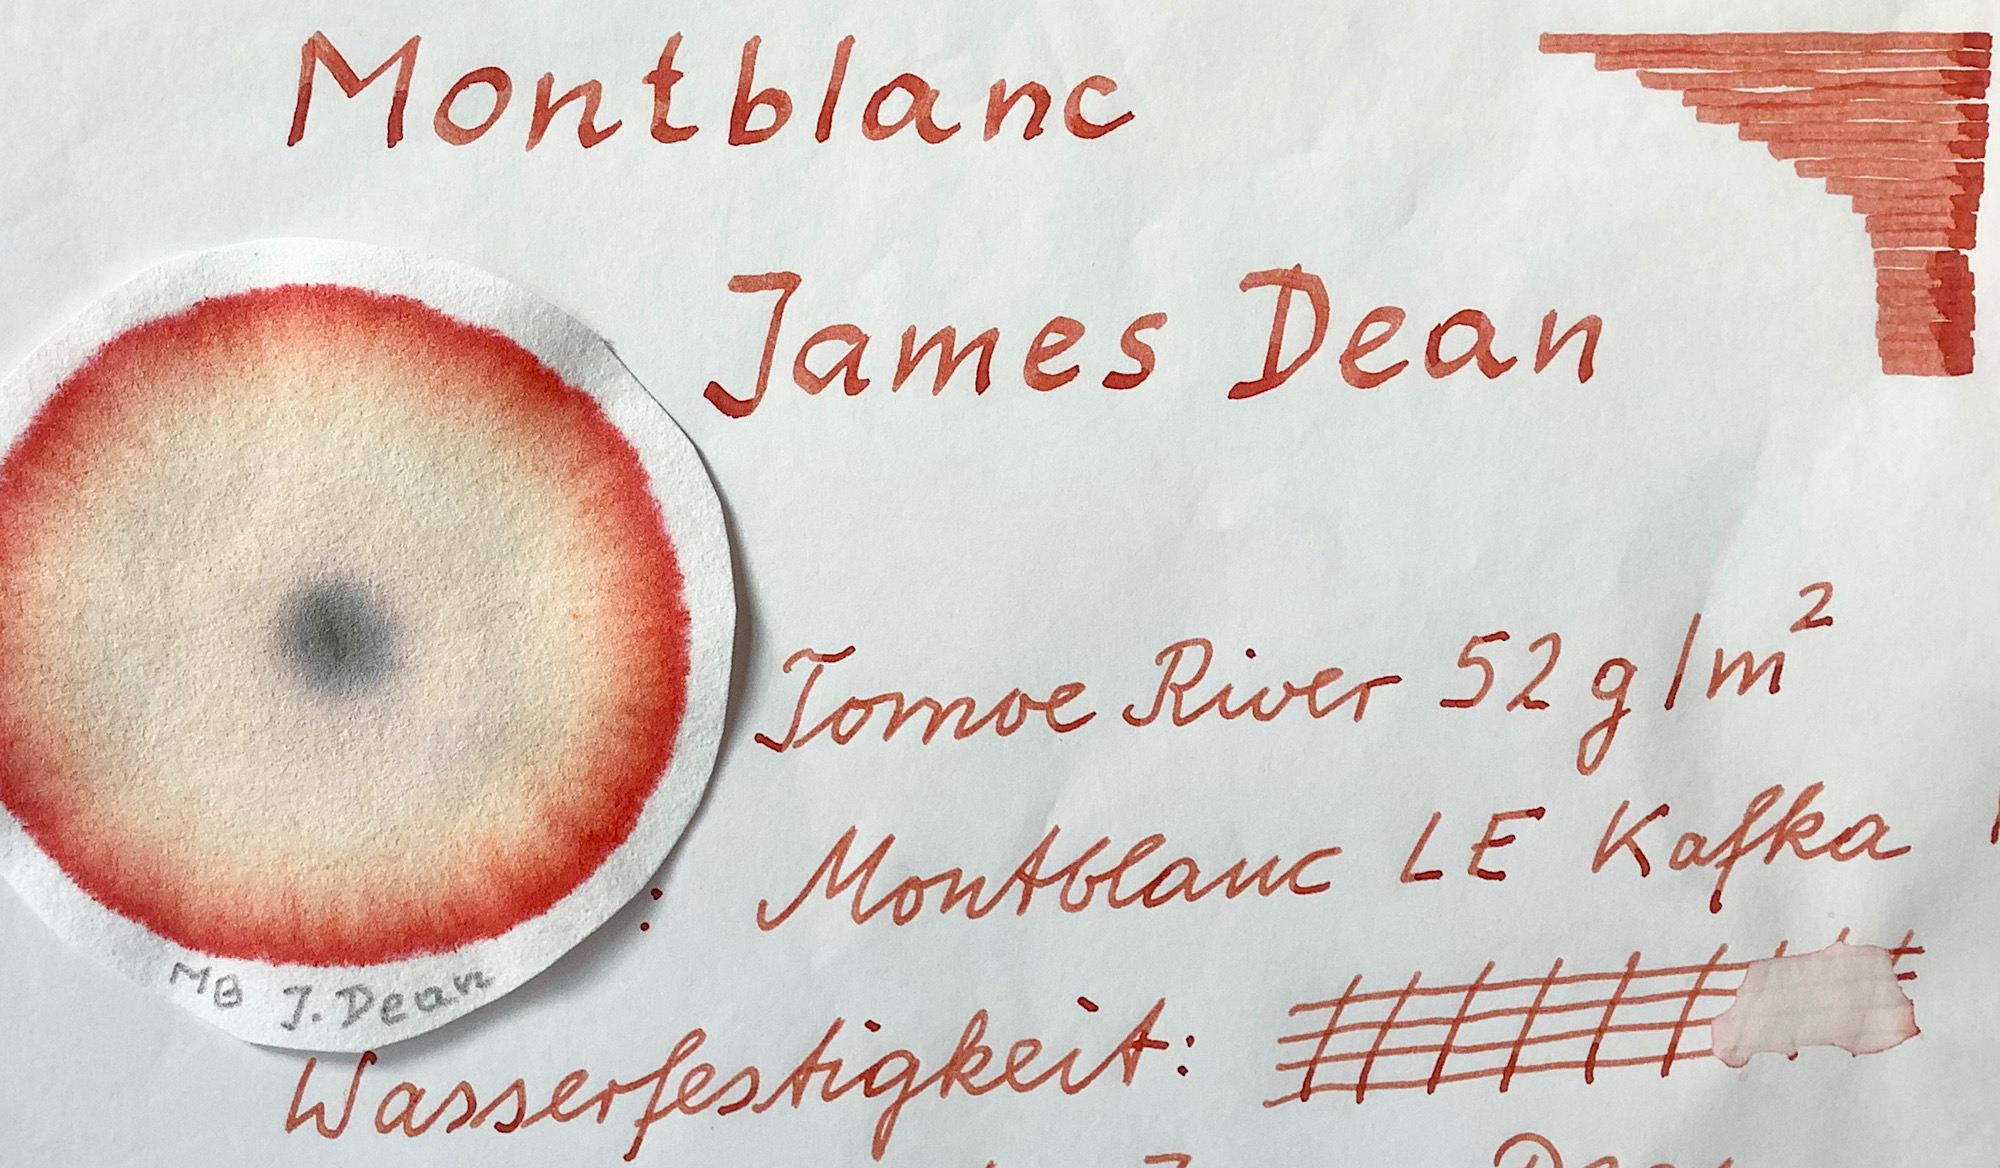 Montblanc
James Dean
Tomoe River 52 g/m²
: Montblanc LE Kafka
MB J. Dean
Wasserfestigkeit: